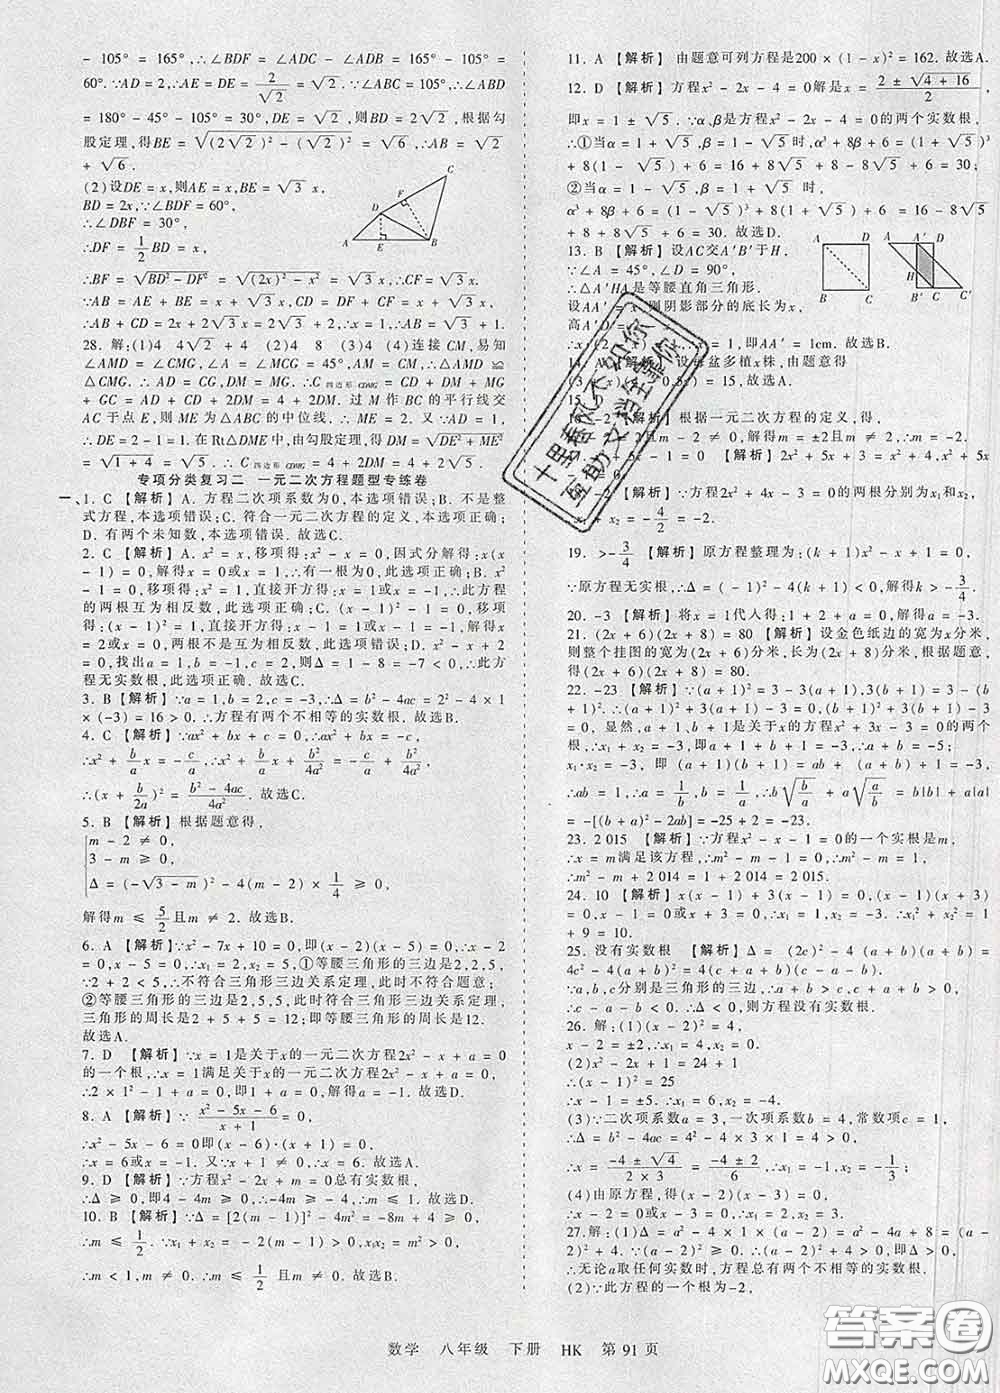 - 105° = 165°,∴∠BDF = ∠ADC - ∠ADB = 165° - 105° =
60°.∵AD = 2,∴AE = DE = 2/√2 = √2.∵∠ABC = 105°,∴∠ABD
= 180° - 45° - 105° = 30°,DE = √2,则BD = 2√2,根据勾
股定理,得BE = √((2√2)² - (√2)²) = √6,∴AB = √2
+ √6.
(2)设DE = x,则AE = x,BE = √3 x,
BD = 2x,∵∠BDF = 60°,
∴∠DBF = 30°,
∴DF = 1/2 BD = x,
∴BF = √(BD² - DF²) = √((2x)² - x²) = √3 x,
28. 解:(1)4 4√2 + 4 (2)4 (3)8 (4)连接CM,易知
交于点E,则ME为△ABC的中位线,∴ME = 2.又∵AD = 1,
∴DE = 2 - 1 = 1.在Rt△DME中,由勾股定理,得DM = √(DE² + ME²)
= √(1 + 4) = √5,∴C四边形CDMG = 4 + 2DM = 4 + 2√5.
专项分类复习二 一元二次方程题型专练卷
一、1. C 【解析】A. 方程二次项系数为0,本选项错误;B. 不是整
式方程,本选项错误;C. 符合一元二次方程的定义,本选项正确;
D. 有两个未知数,本选项错误. 故选C.
2. C 【解析】A. x² = x,移项得:x² - x = 0,因式分解得:x(x
- 1) = 0,解得x = 0或x = 1,∴有一根为0,此选项错误;B. 移
项得:x² = 1,直接开方得:x = 1或x = -1,∴此方程
的两根互为相反数,此选项错误;C. (x - 1)² - 4 = 0,移项
得:(x - 1)² = 4,直接开方得:x - 1 = 2或x - 1 = -2,解得
x = 3或x = -1,∴两根不是互为相反数,此选项错误;D. x² - x + 2
= 0,找出a = 1,b = -1,c = 2,则Δ = 1 - 8 = -7 < 0,∴此方
程无实数根,此选项正确. 故选C.
3. B 【解析】∵a = 1,b = 2,c = -3,∴Δ = b² - 4ac = 2² - 4 × 1
× (-3) = 16 > 0.∴方程有两个不相等的实数根. 故选B.
4. C 【解析】∵ax² + bx + c = 0,∴ax² + bx = -c,
∴x² + b/a x = -c/a,∴x² + b/a x + b²/4a² = -c/a + b²/4a²,
∴(x + b/2a)² = (b² - 4ac)/4a². 故选C.
5. B 【解析】根据题意得,
m - 2 ≠ 0,
3 - m ≥ 0,
Δ = (-√(3 - m))² - 4(m - 2) × 1/4 ≥ 0,
解得m ≤ 5/2且m ≠ 2. 故选B.
6. A 【解析】∵x² - 7x + 10 = 0,即(x - 2)(x - 5) = 0,∴x - 2
= 0或x - 5 = 0,解得:x = 2或x = 5,①等腰三角形的三边是2,2,5,
∵2 + 2 < 5,∴不符合三角形三边关系定理,此时不符合题意;
②等腰三角形的三边是2,5,5,此时符合三角形三边关系定理,
三角形的周长是2 + 5 + 5 = 12;即等腰三角形的周长是12.
故选A.
7. D 【解析】∵x = 1是关于x的一元二次方程2x² - x + a = 0
的一个根,∴x = 1满足关于x的一元二次方程2x² - x + a = 0,
∴2 × 1² - 1 + a = 0,即1 + a = 0,解得a = -1. 故选D.
8. A 【解析】∵(x² - 5x - 6)/(x + 1) = 0,
∴x² - 5x - 6 = 0即(x - 6)·(x + 1) = 0,
∴x = 6或x = -1.又∵x + 1 ≠ 0,∴x = 6. 故选A.
9. D 【解析】∵方程x² - x + m = 0总有实数根,
∴Δ ≥ 0,即1 - 4m ≥ 0,∴-4m ≥ -1,∴m ≤ 1/4. 故选D.
10. B 【解析】∵Δ = [2(m - 1)]² - 4m² = -8m + 4 ≥ 0,
∴m ≤ 1/2.∵x₁ + x₂ = -2(m - 1) > 0,x₁x₂ = m² > 0,
∴m < 1,m ≠ 0.∴m ≤ 1/2且m ≠ 0. 故选B.
11. A 【解析】由题意可列方程是200 × (1 - x)² = 162. 故选A.
12. D 【解析】方程x² - 2x - 4 = 0解是x = (2 ± √(4 + 16))/2,
即x = 1 ± √5,∵α、β是方程x² - 2x - 4 = 0的两个实数根,
∴①当α = 1 + √5,β = 1 - √5时,α³ + 8β + 6 = (1 + √5)³
+ 8(1 - √5) + 6 = 16 + 8√5 + 8 - 8√5 + 6 = 30;
②当α = 1 - √5,β = 1 + √5时,
α³ + 8β + 6 = (1 - √5)³ + 8(1 + √5) + 6 = 16 - 8√5
+ 8 + 8√5 + 6 = 30. 故选D.
13. B 【解析】设AC交A′B′于H,
∵∠A = 45°,∠D = 90°,
∴△A′HA是等腰直角三角形.
设AA′ = x,则阴影部分的底长为x,
∴x = 1,即AA′ = 1cm. 故选B.
设每盆多植x株,由题意得
= 15,故选A.
【解析】根据一元二次方程的定义,得,
= 2且m - 2 ≠ 0,解得m = ±2且m ≠ 2,∴m = -2.
+ x₂ = -4/2 = -2.
19. > -3/4 【解析】原方程整理为:(k + 1)x² - x + 1 = 0,
20. -3 【解析】将x = 1代入得:1 + 2 + a = 0,解得a = -3.
21. (2x + 6)(2x + 8) = 80 【解析】设金色纸边的宽为x分米,
则整个挂图的宽为(2x + 6)分米,长为(2x + 8)分米,根据题意,
得(2x + 6)(2x + 8) = 80.
22. -23 【解析】∵(a + 1)² = 3 - 3(a + 1),3(b + 1) = 3
- (b + 1)²,∴(a + 1)² + 3(a + 1) - 3 = 0,(b + 1)² + 3(b + 1) -
3 = 0. 显然,a + 1,b + 1是关于x的方程x² + 3x - 3 = 0的两
根,∴x₁ + x₂ = -3,即a + 1 + b + 1 = -3,∴a + b = -5;
x₁·x₂ = -3, 即(a + 1)(b + 1) = ab + (a + b) + 1 = -3,
= -[(b + a)² - 2ab] = -25 + 2 = -23.
23. 2 015 【解析】∵方程x² - x - 2 014 = 0的一个实根是m,
∴x = m满足该方程,∴m² - m - 2 014 = 0,
∴m² - m + 1 = 2 014 + 1 = 2 015.
24. 10 【解析】x(x - 1) + 3(x - 1) = 0,(x - 1)(x + 3)
= 0,x - 1 = 0或x + 3 = 0,∴x₁ = 1,x₂ = -3,∴x₁² + x₂² = 1
+ 9 = 10.
25. 没有实数根 【解析】Δ = (2c)² - 4(a + b)(a + b) =
4c² - 4(a + b)² = 4(c + a + b)(c - a - b).
∵a,b,c分别是三角形的三边,∴a + b > c.∴c + a + b > 0,
c - a - b < 0,∴Δ < 0,则方程没有实数根.
26. 解:(1)(x - 2)² = 4,
x - 2 = ±2,∴x₁ = 4,x₂ = 0.
(2)x² - 2x + 1 = 24 + 1
∴(x - 1)² = 25
∴x - 1 = ±5,∴x₁ = 6,x₂ = -4.
(3)∵二次项系数a = 3,一次项系数b = 4,常数项c = 1,
∴Δ = b² - 4ac = 4² - 4 × 3 × 1 = 4 > 0,
∴x = (-4 ± √4)/(2 × 3) = (-4 ± 2)/6,∴x₁ = -1,x₂ = -1/3;
(4)由原方程,得(x - 1)(x - 3) = 0,
∴x - 1 = 0或x - 3 = 0,∴x₁ = 1,x₂ = 3.
27. 解:(1)Δ = a² - 4 × 1 × (a - 2) = a² - 4a + 8 = (a -
2)² + 4,∵(a - 2)² ≥ 0,∴(a - 2)² + 4 > 0,即Δ > 0,
∴无论a取任何实数时,方程总有两个不相等的实数根.
(2)∵此方程的一个根为-2,
数学 八年级 下册 HK 第91页
答案圈
MXQE.COM